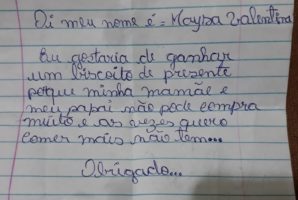 Oi meu nome é = Maysa Valentina
Eu gostaria de ganhar
um biscoito de presente
porque minha mamãe e
meu papai não pode compra
muito e as vezes quero
comer mais não tem...
Obrigado...